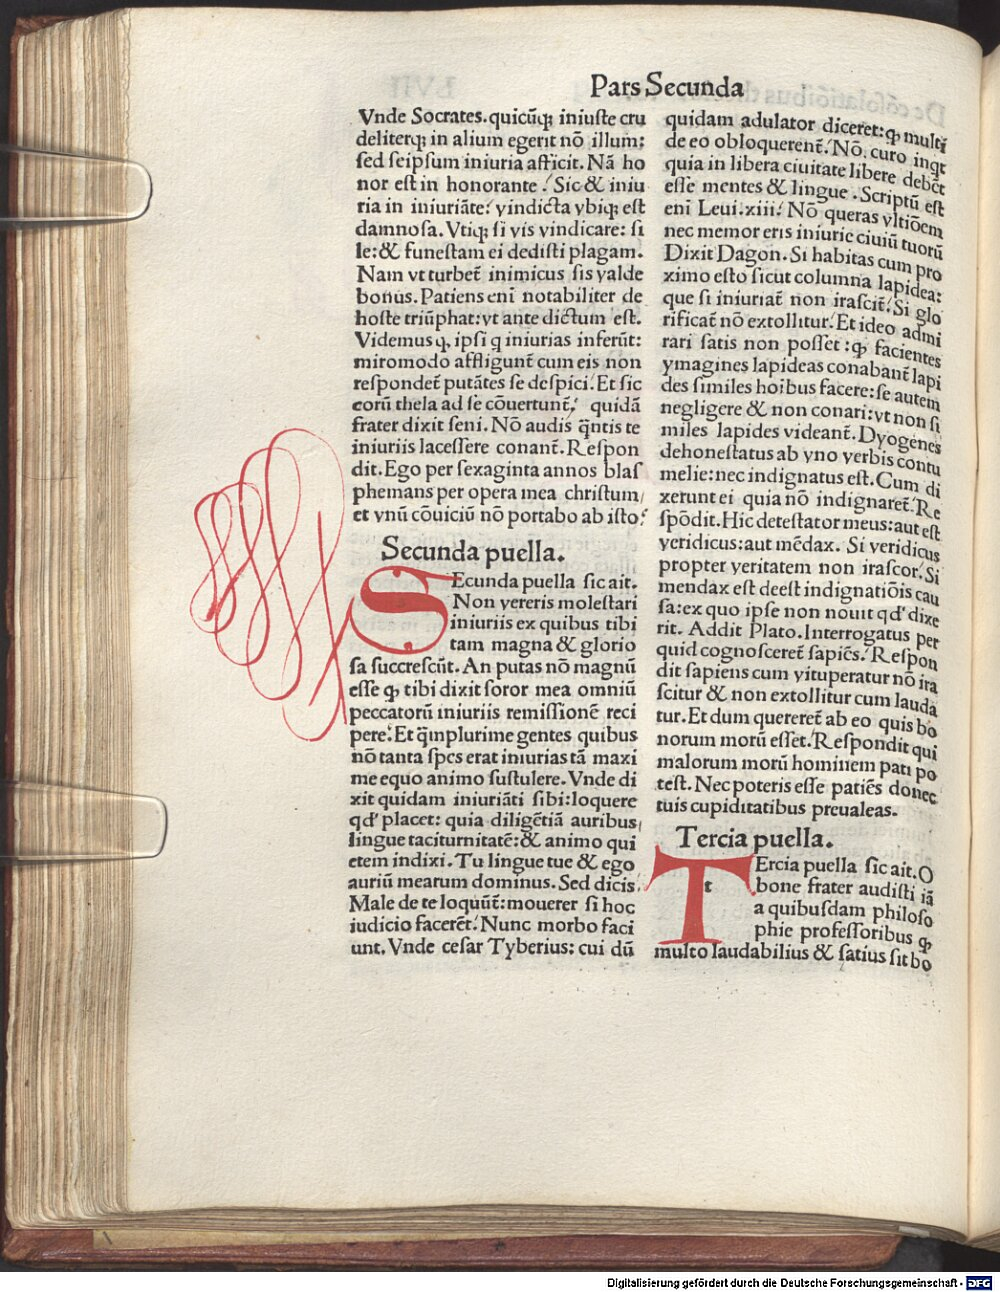 Pars Secunda
Vnde Socrates.quicūqꝫ iniuste cru
deliterqꝫ in alium egerit nō illum:
sed seipsum iniuria afficit. Nā ho
nor est in honorante. Sic & iniu
ria in iniuriāte: vindicta vbiqꝫ est
damnosa. Vtiqꝫ si vis vindicare: si
le:& funestam ei dedisti plagam.
Nam vt turbet̄ inimicus sis valde
bonus. Patiens eni notabiliter de
hoste triūphat:vt ante dictum est.
Videmus q, ipsi q iniurias inferūt:
miromodo affligunt̄ cum eis non
respondet̄ putātes se despici. Et sic
eorū thela ad se cōuertunt. quidā
frater dixit seni. Nō audis q̄ntis te
iniuriis lacessere conant̄. Respon
dit. Ego per sexaginta annos blas
phemans per opera mea christum
et vnū cōuiciū nō portabo ab isto?
Secunda puella.
SEcunda puella sic ait.
Non vereris molestari
iniuriis ex quibus tibi
tam magna & glorio
sa succrescūt. An putas nō magnū
esse ꝙ tibi dixit soror mea omniū
peccatorū iniuriis remissionē reci
pere. Et q̄mplurime gentes quibus
nō tanta spes erat iniurias tā maxi
me equo animo sustulere. Vnde di
xit quidam iniuriāti sibi:loquere
qd' placet: quia diligētiā auribus
lingue taciturnitatē:& animo qui
etem indixi. Tu lingue tue & ego
auriū mearum dominus. Sed dicis
Male de te loquūt̄: mouerer si hoc
iudicio facerēt. Nunc morbo faci
unt. Vnde cesar Tyberius: cui dū
quidam adulator diceret:ꝙ multi
de eo obloquerent̄. Nō, curo inqt
quia in libera ciuitate libere debēt
esse mentes & lingue. Scriptū est
eni Leui.xiii. Nō queras vltiōem
nec memor eris iniurie ciuiū tuorū
Dixit Dagon. Si habitas cum pro
ximo esto sicut columna lapidea:
que si iniuriat̄ non irascit̄. Si glo
rificat̄ nō extollitur. Et ideo admi
rari satis non posset :ꝙ facientes
ymagines lapideas conabant̄ lapi
des similes hoibus facere:se autem
negligere & non conari:vt non si
miles lapides videant̄. Dyogenes
dehonestatus ab vno verbis contu
melie:nec indignatus est. Cum di
xerunt ei quia nō indignaret̄. Re
spōdit. Hic detestator meus:aut est
veridicus:aut mēdax. Si veridicus
propter veritatem non irascor. Si
mendax est deest indignatiōis cau
sa:ex quo ipse non nouit qd' dixe
rit. Addit Plato. Interrogatus per
quid cognosceret̄ sapiēs. Respon
dit sapiens cum vituperatur nō ira
scitur & non extollitur cum lauda
tur. Et dum quereret̄ ab eo quis bo
norum morū esset. Respondit qui
malorum morū hominem pati po
test. Nec poteris esse patiēs donec
tuis cupiditatibus preualeas.
Tercia puella.
TErcia puella sic ait. O
bone frater audisti iā
a quibusdam philoso
phie professoribus ꝙ
multo laudabilius & satius sit bo
Digitalisierung gefördert durch die Deutsche Forschungsgemeinschaft - DFG